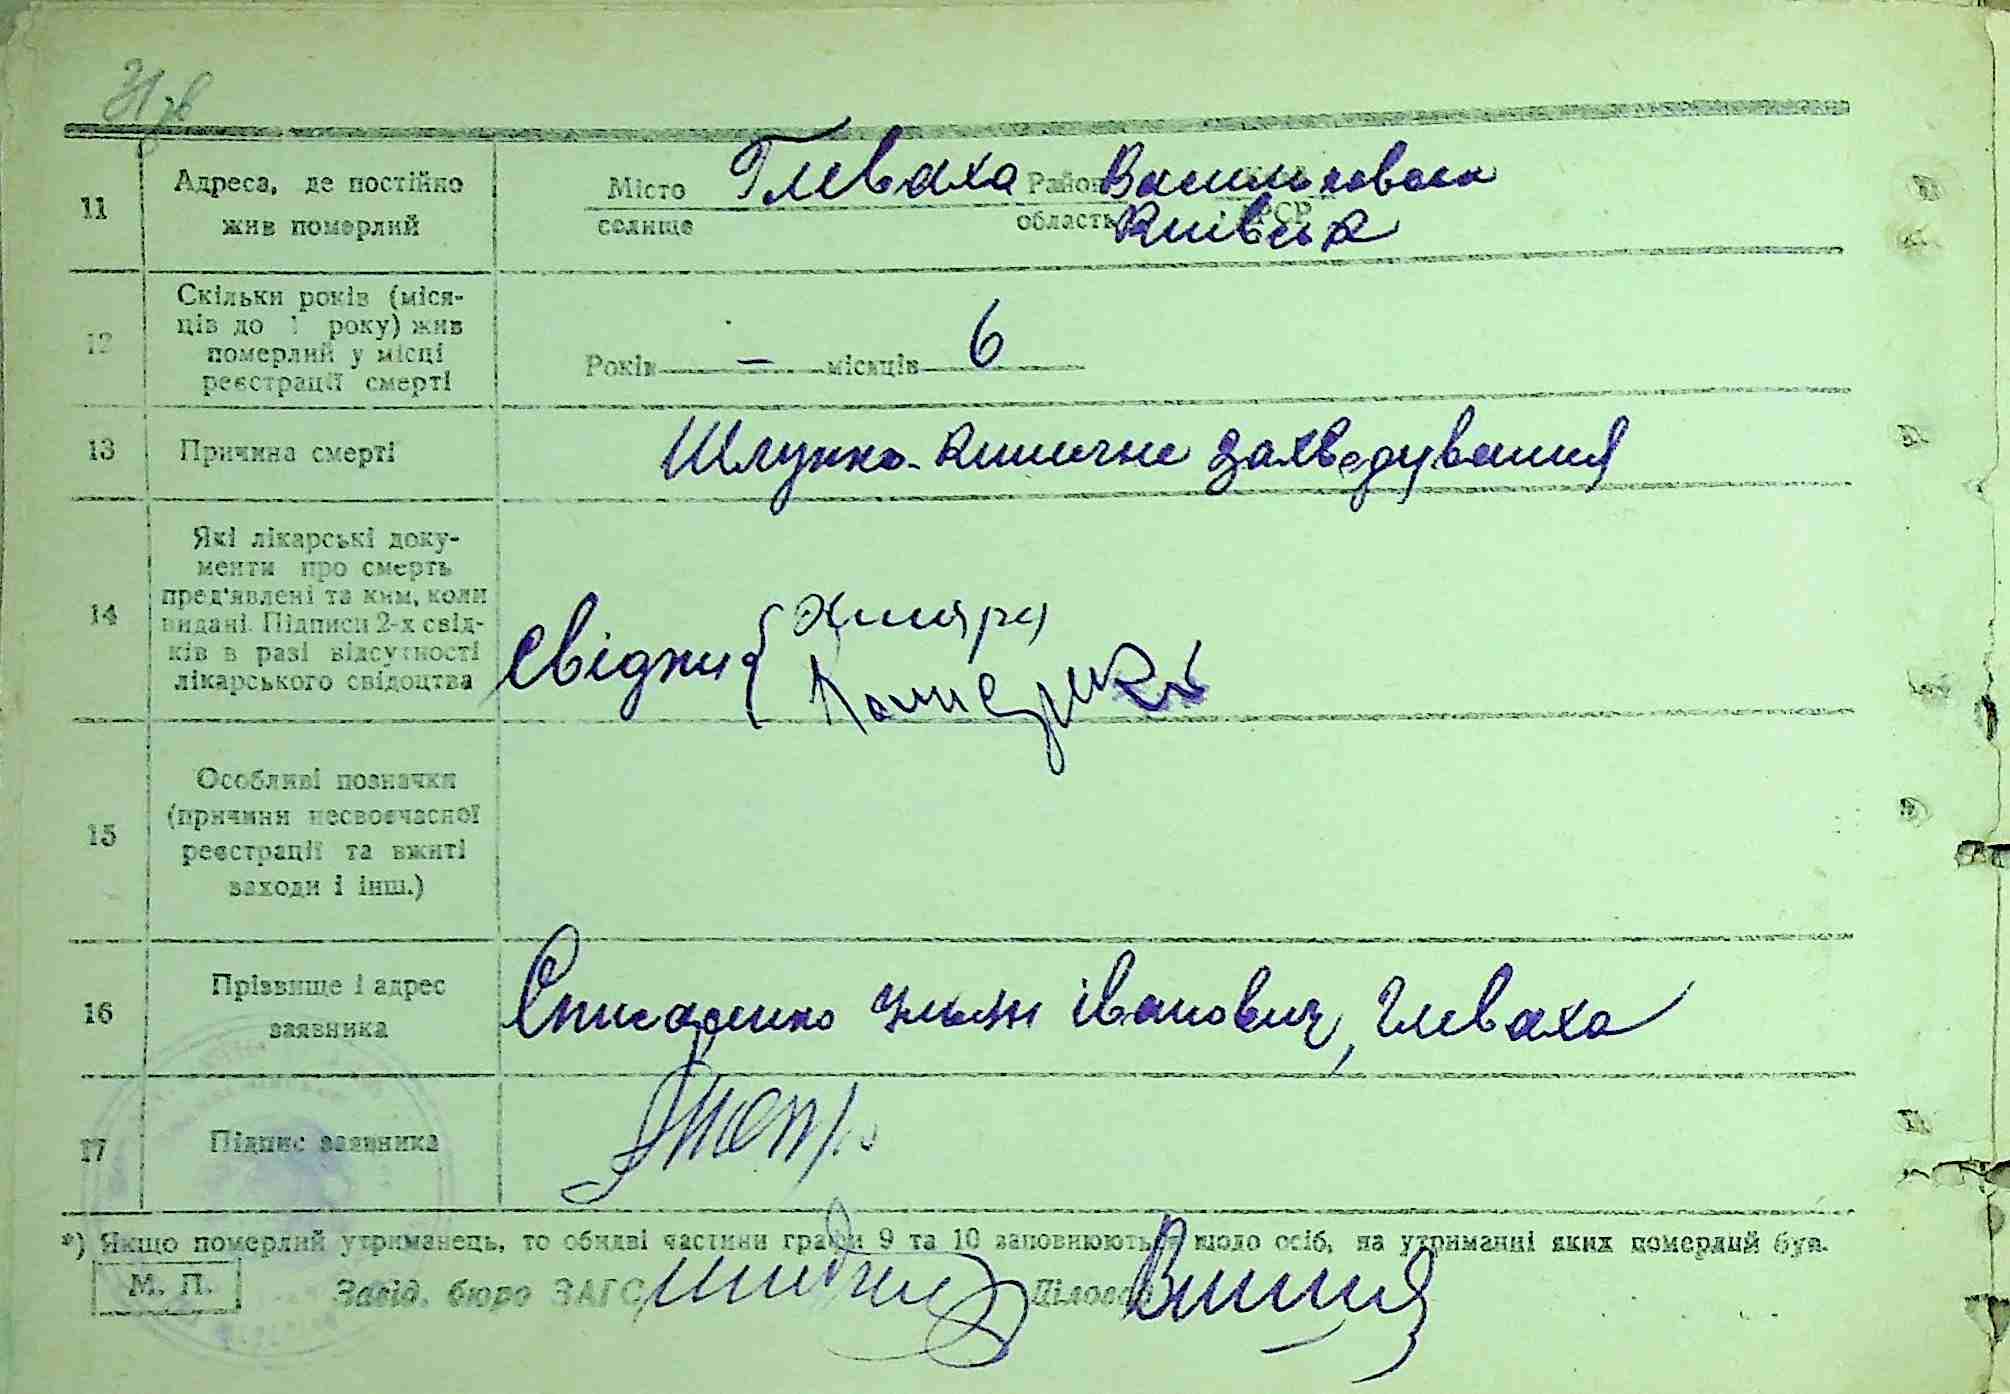 31 зв
11 Адреса, де постійно жив померлий Місто селище Глеваха Район Васильковськ
область Київськ
12 Скільки років (міся-
ців до 1 року) жив
померлий у місці
реєстрації смерті
Років — місяців 6
13 Причина смерті Шлунко-кишечне захведування
14 Які лікарські доку-
менти про смерть
пред'явлені та ким, коли
видані. Підписи 2-х свід-
ків в разі відсутності
лікарського свідоцтва
Свідки
15 Особливі позначки
(причини несвоєчасної
реєстрації та вжиті
заходи і інш.)
16 Прізвище і адрес
заявника
Іванович, Глеваха
17 Підпис заявника
*) Якщо померлий утриманець, то обидві частини графи 9 та 10 заповнюються щодо осіб, на утриманні яких померлий був.
М. П. Завід. бюро ЗАГС Діловод